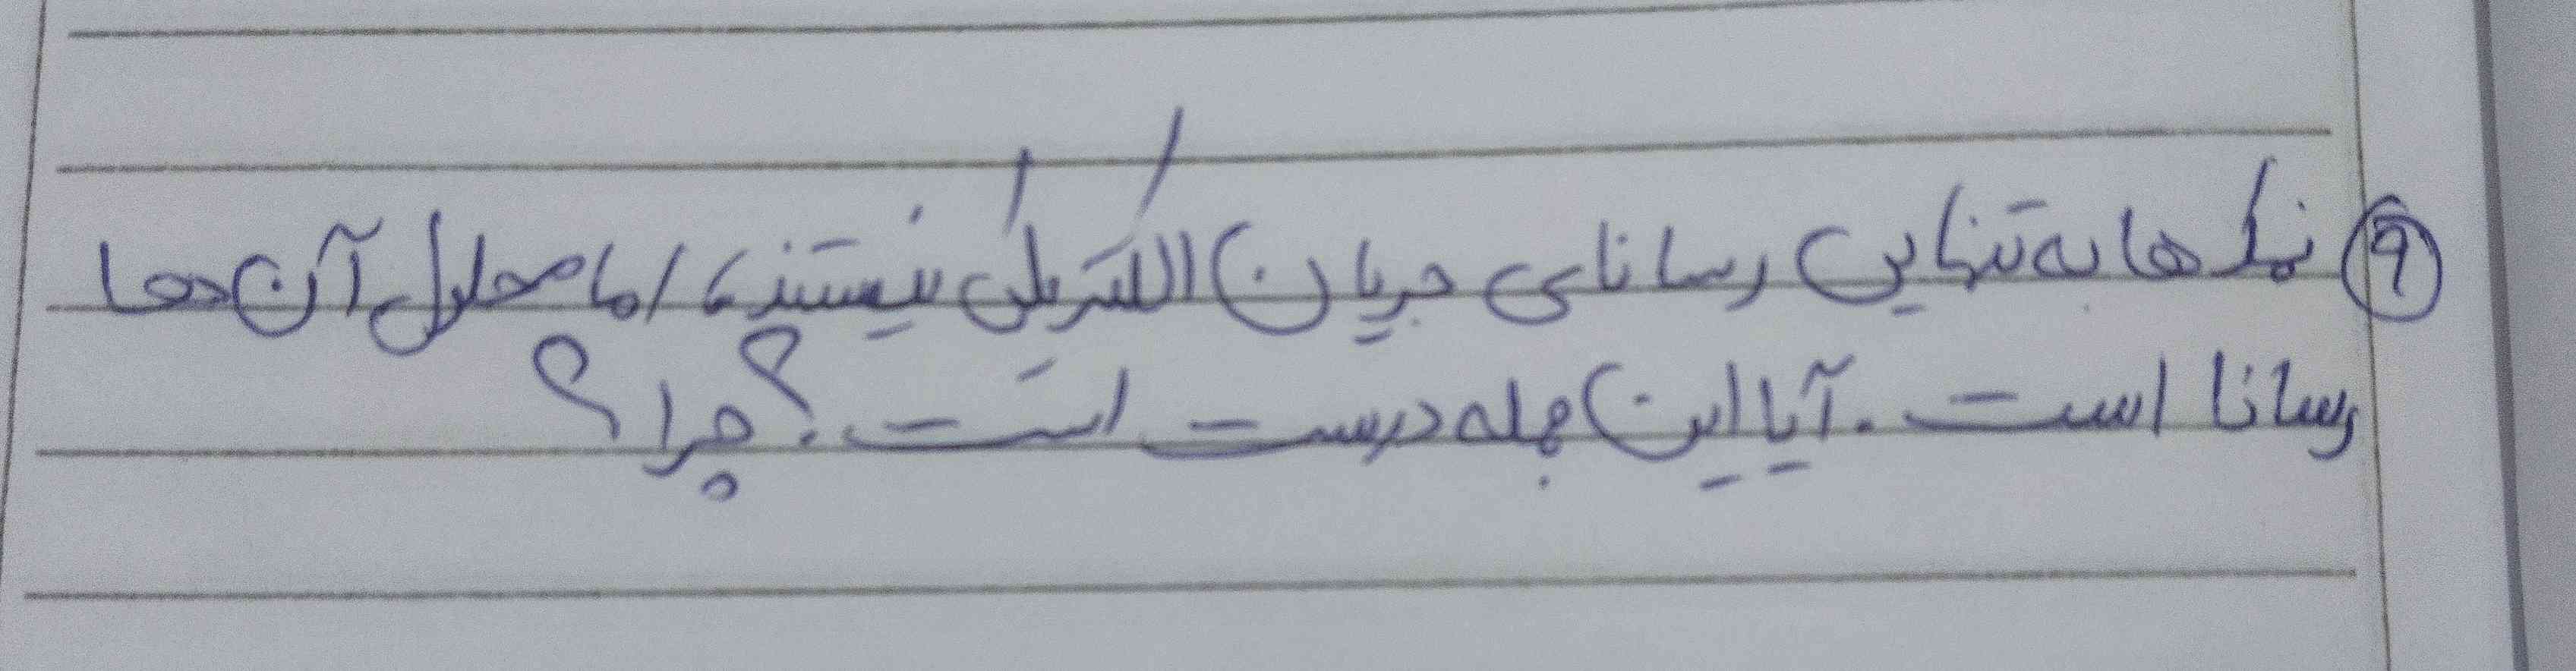 ۹ نمک ها به تنهایی رسانای جریان الکتریکی نیستند، اما محلول آن ها
رسانا است. آیا این جمله درست است؟ چرا؟